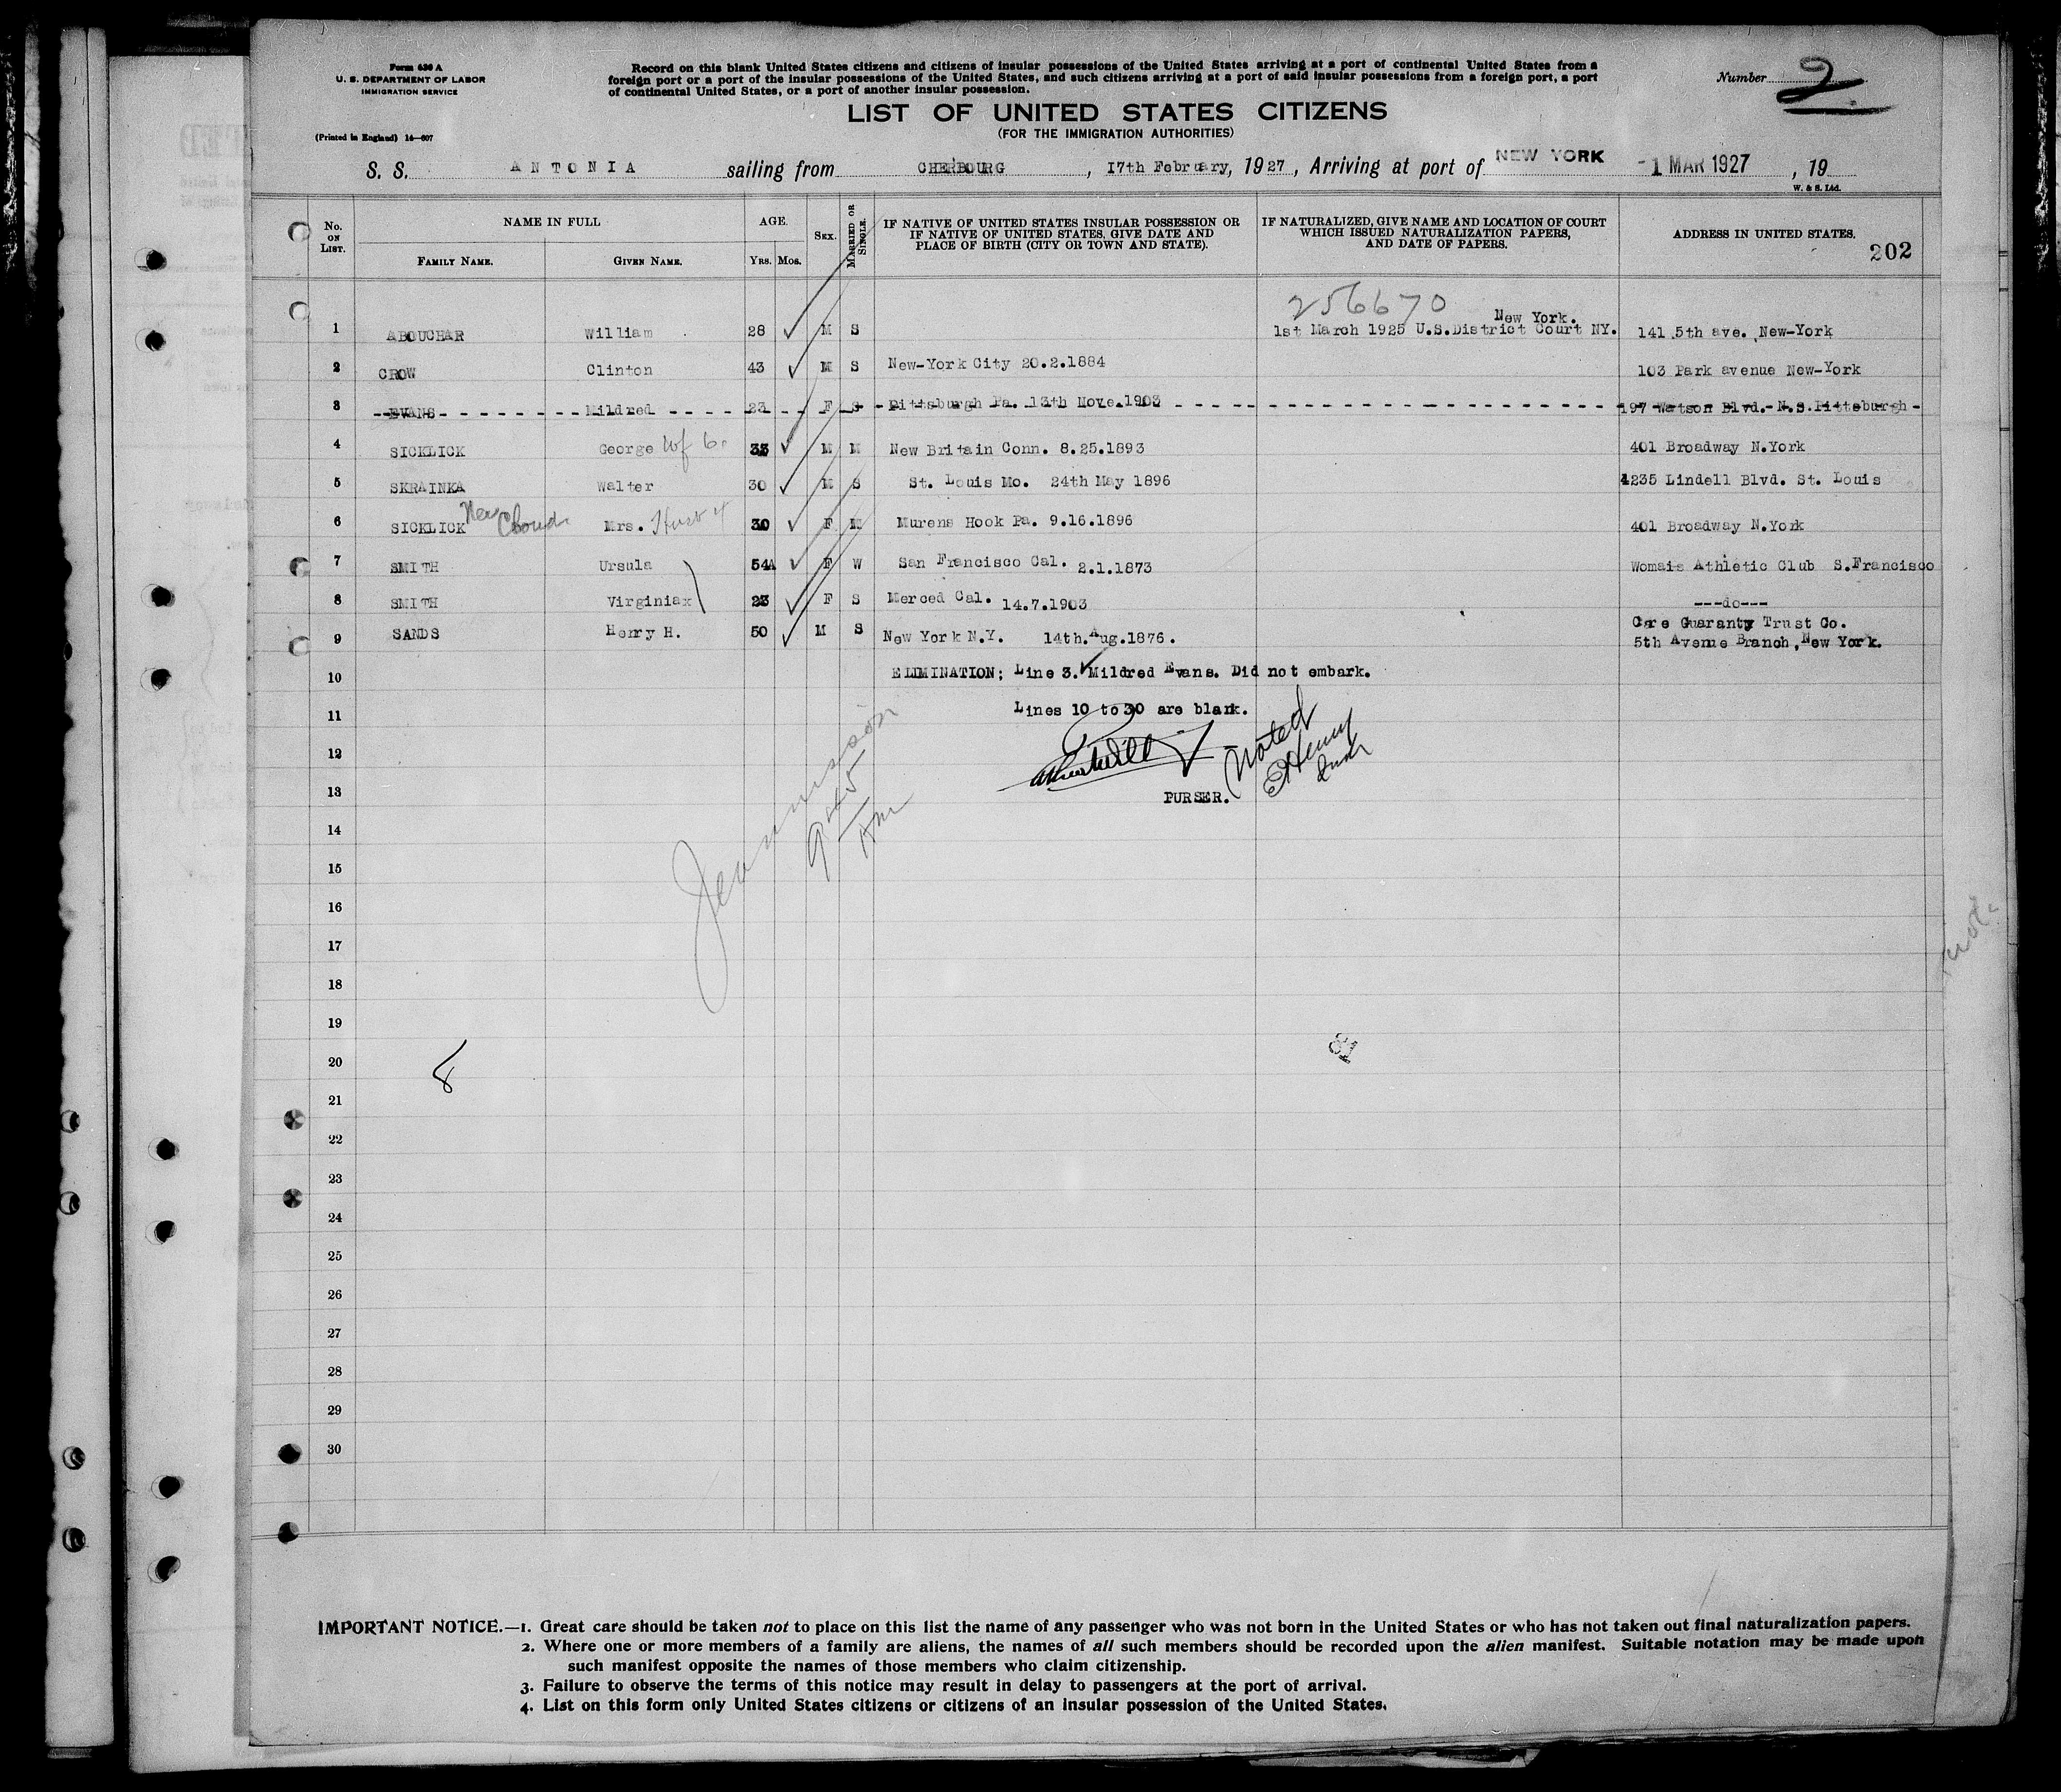 Form 630 A
U. S. DEPARTMENT OF LABOR
IMMIGRATION SERVICE
(Printed in England) 14—607
Record on this blank United States citizens and citizens of insular possessions of the United States arriving at a port of continental United States from a
foreign port or a port of the insular possessions of the United States, and such citizens arriving at a port of said insular possessions from a foreign port, a port
of continental United States, or a port of another insular possession.
Number 2
LIST OF UNITED STATES CITIZENS
(FOR THE IMMIGRATION AUTHORITIES)
S. S. ANTONIA sailing from CHERBOURG, 17th February, 1927, Arriving at port of NEW YORK -1 MAR 1927, 19
W. & S. Ltd.
No. ON LIST. NAME IN FULL AGE. SEX. MARRIED OR SINGLE. IF NATIVE OF UNITED STATES INSULAR POSSESSION OR IF NATIVE OF UNITED STATES, GIVE DATE AND PLACE OF BIRTH (CITY OR TOWN AND STATE). IF NATURALIZED, GIVE NAME AND LOCATION OF COURT WHICH ISSUED NATURALIZATION PAPERS, AND DATE OF PAPERS. ADDRESS IN UNITED STATES.
FAMILY NAME. GIVEN NAME. YRS. MOS. 202
256670
New York.
1 ABOUCHAR William 28 M S 1st March 1925 U.S.District Court NY. 141 5th ave. New-York
2 CROW Clinton 43 M S New-York City 20.2.1884 103 Park avenue New-York
3 EVANS Mildred 23 F S Pittsburgh Pa. 13th Move.1903 197 Watson Blvd. N.S.Pittsburgh
4 SICKLICK George Wf 6. 33 M M New Britain Conn. 8.25.1893 401 Broadway N.York
5 SKRAINKA Walter 30 M S St. Louis Mo. 24th May 1896 4235 Lindell Blvd. St. Louis
6 SICKLICK Mrs. Husb 4 30 F M Murens Hook Pa. 9.16.1896 401 Broadway N.York
7 SMITH Ursula 54 F W San Francisco Cal. 2.1.1873 Womais Athletic Club S.Francisco
8 SMITH Virginiax 23 F S Merced Cal. 14.7.1903 ---do---
9 SANDS Henry H. 50 M S New York N.Y. 14th.Aug.1876. Care Guaranty Trust Co.
5th Avenue Branch, New York.
10 ELIMINATION; Line 3. Mildred Evans. Did not embark.
11 Lines 10 to 30 are blank.
12 Noted
13 PURSER.
14
15
16
17
18
19
20
8
81
21
22
23
24
25
26
27
28
29
30
IMPORTANT NOTICE.—1. Great care should be taken not to place on this list the name of any passenger who was not born in the United States or who has not taken out final naturalization papers.
2. Where one or more members of a family are aliens, the names of all such members should be recorded upon the alien manifest. Suitable notation may be made upon
such manifest opposite the names of those members who claim citizenship.
3. Failure to observe the terms of this notice may result in delay to passengers at the port of arrival.
4. List on this form only United States citizens or citizens of an insular possession of the United States.